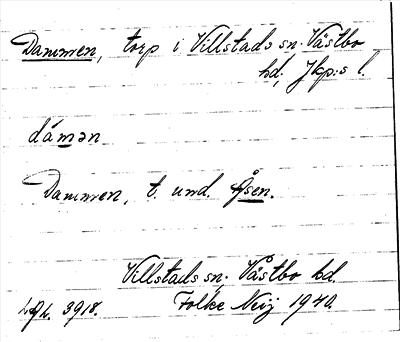 Dammen, torp i Villstads sn. Västbo
hd, Jkp:s l.
dámən
Dammen, t. und. Åsen.
Villstads sn. Västbo hd.
3918. Folke Neij 1940.